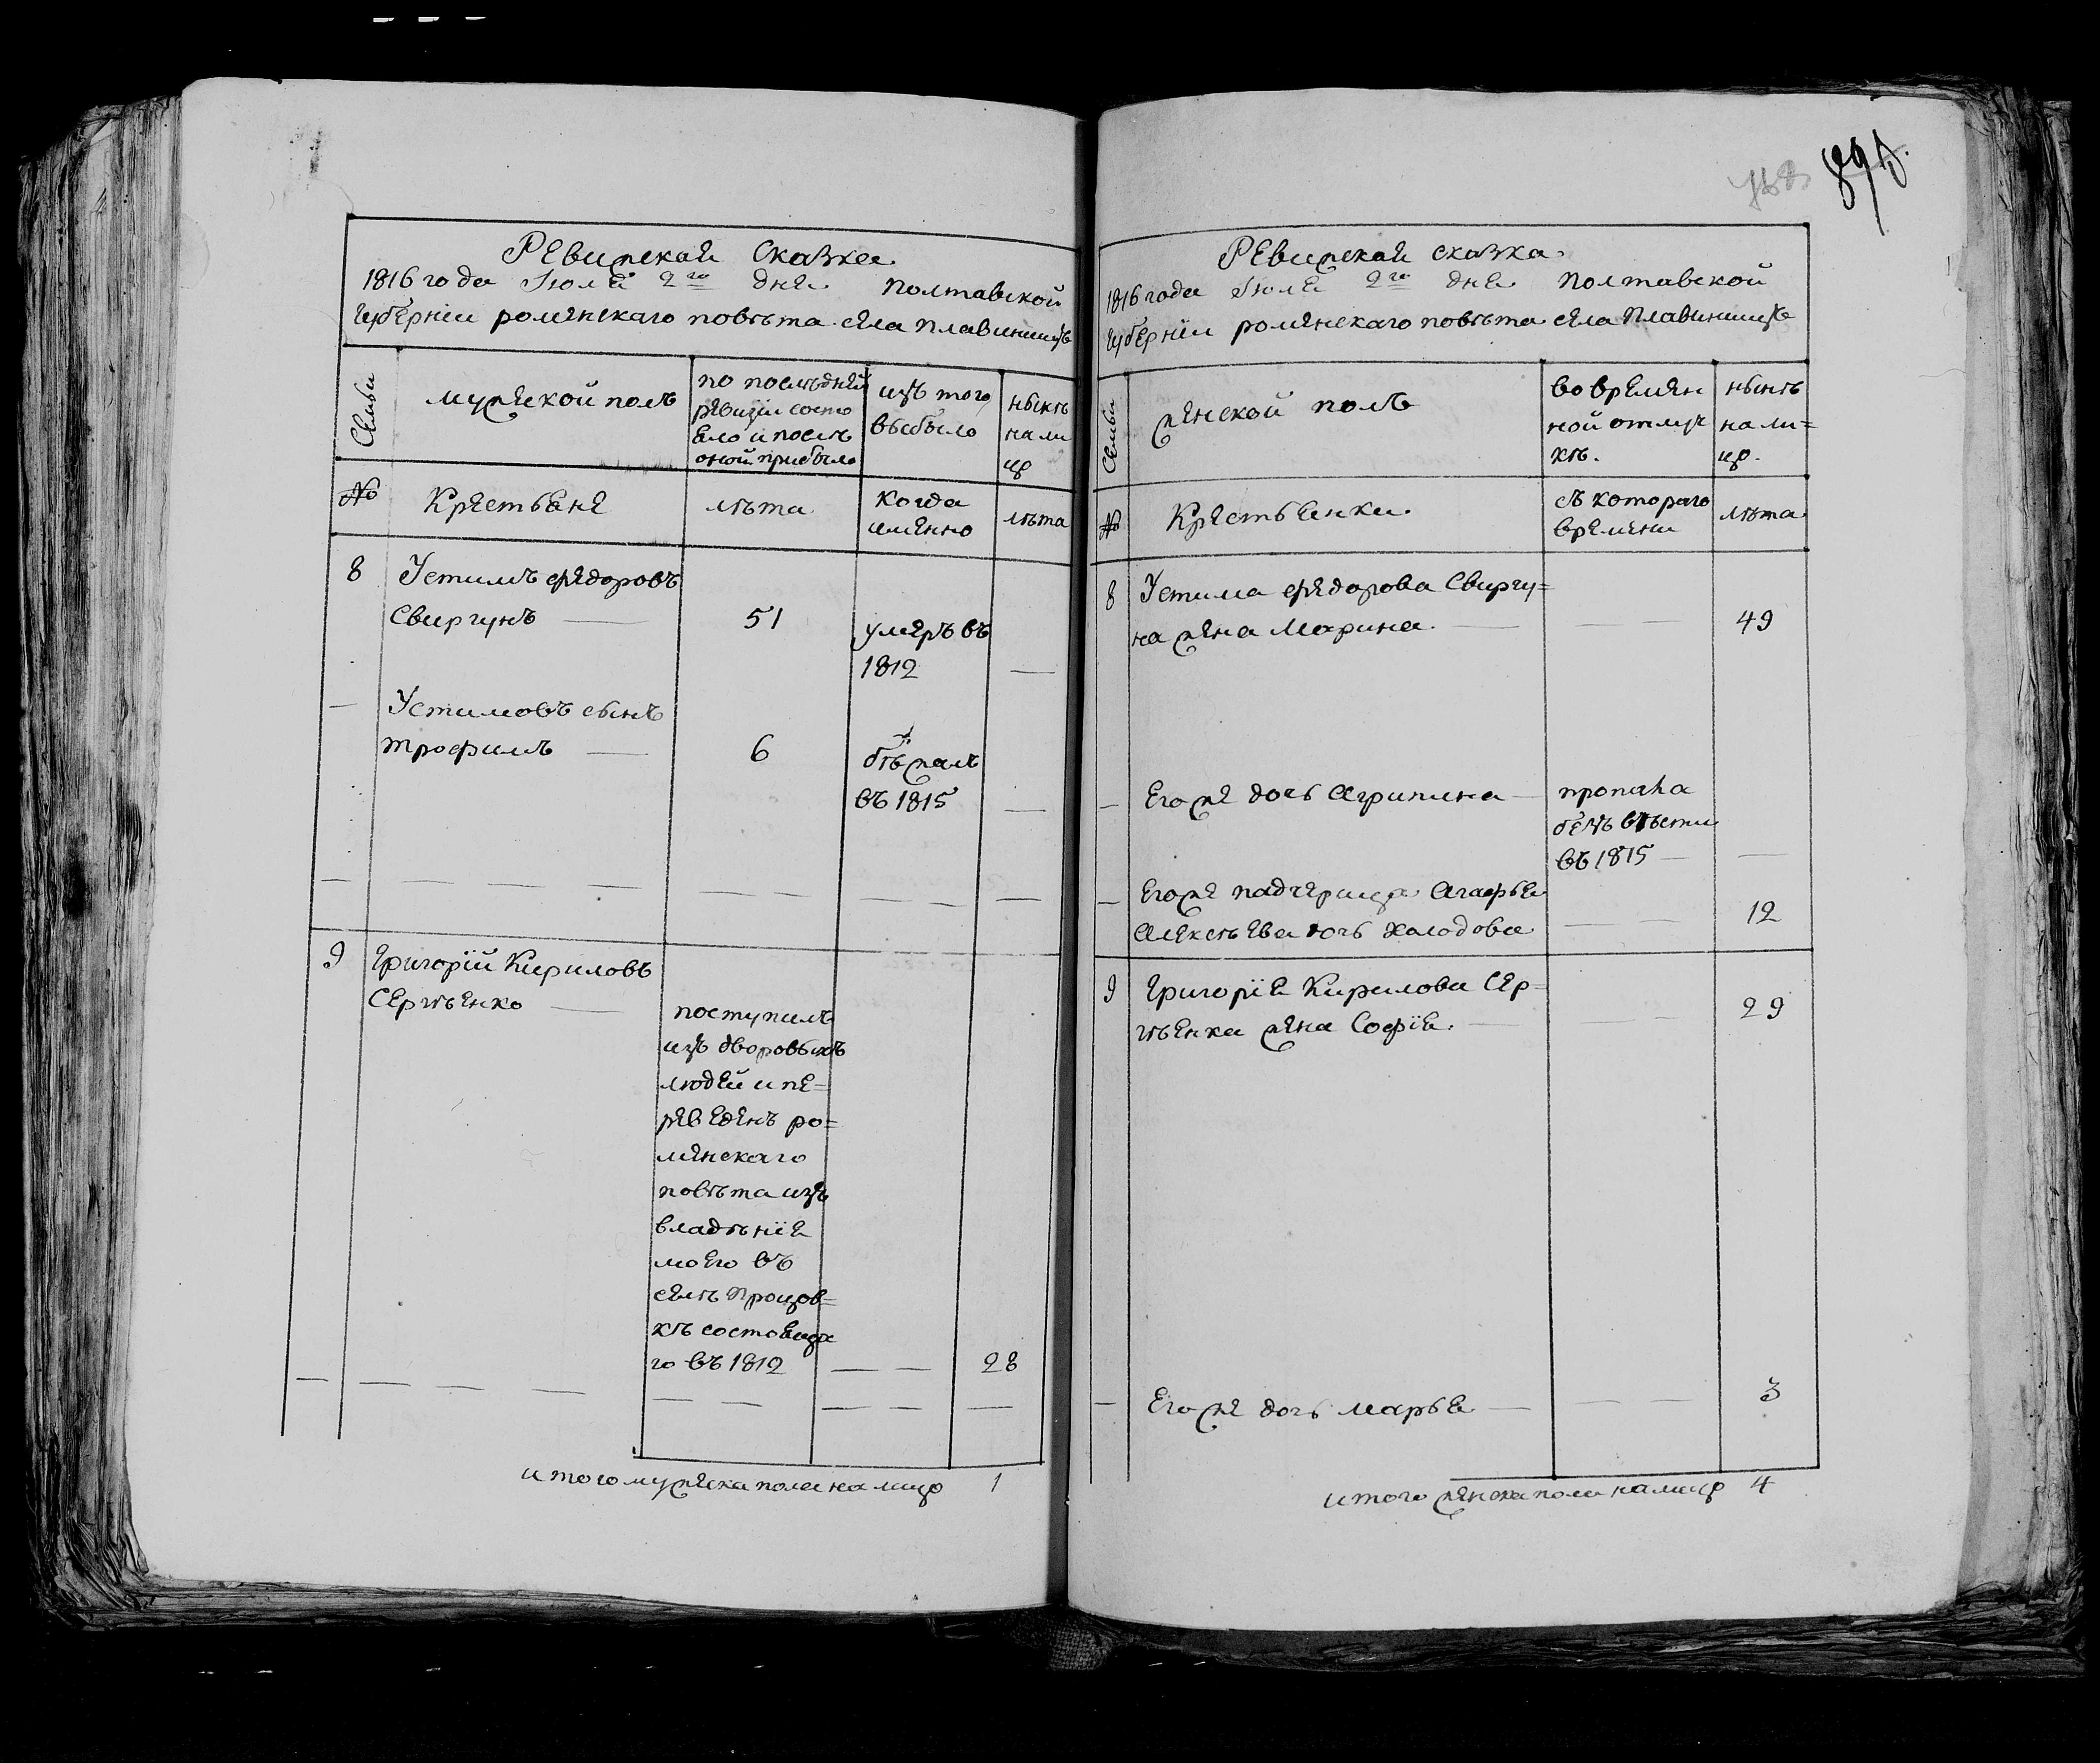 Ревижская сказка
1816 года Июля 2го дня Полтавской
Губернiи роменскаго повѣта села Плавинищъ
Семьи
мужеской полъ
по послѣдней
ревизiи состо
яло и послѣ
оной прибыло
изъ того
выбыло
нынѣ
на ли
цо
№
Крестьяне
лѣта
когда
именно
лѣта
8
Устимъ Федоровъ
Свиргунъ
51
умеръ въ
1812
Устимовъ сынъ
трофимъ
6
бѣжалъ
въ 1815
9
Григорiй Кириловъ
Сергѣенко
поступилъ
изъ дворовыхъ
людей и пе=
реведенъ ро=
менскаго
повѣта изъ
владѣнiя
моего въ
селѣ Процов=
кѣ состоящя
го въ 1812
28
итого мужеска пола на лицо 1
Ревижская сказка
1816 года Июля 2го дня Полтавской
Губернiи роменскаго повѣта села Плавинищъ
Семьи
женской полъ
во времян
ной отлуч
кѣ.
нынѣ
на ли=
цо.
№
Крестьянки.
съ котораго
времени
лѣта
8
Устима Федорова Свиргу=
на жена Марина.
49
Его же дочь Агрипина
пропала
безъ вѣсти
въ 1815
Его же падчерица Агафья
Алексѣева дочь Халодова
12
9
Григорiя Кирилова Сер=
гѣенка жена Софiя.
29
Его же дочь марья
3
итого женска пола на лицо 4